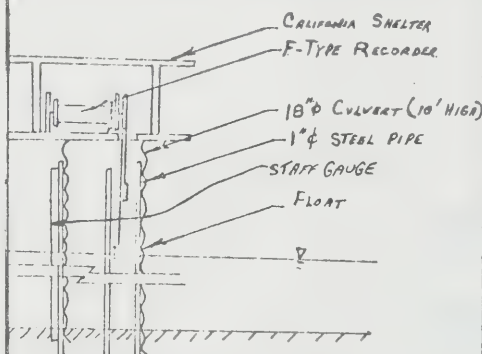 CALIFORNIA SHELTER
F-TYPE RECORDER
18"ϕ CULVERT (10' HIGH)
1"ϕ STEEL PIPE
STAFF GAUGE
FLOAT